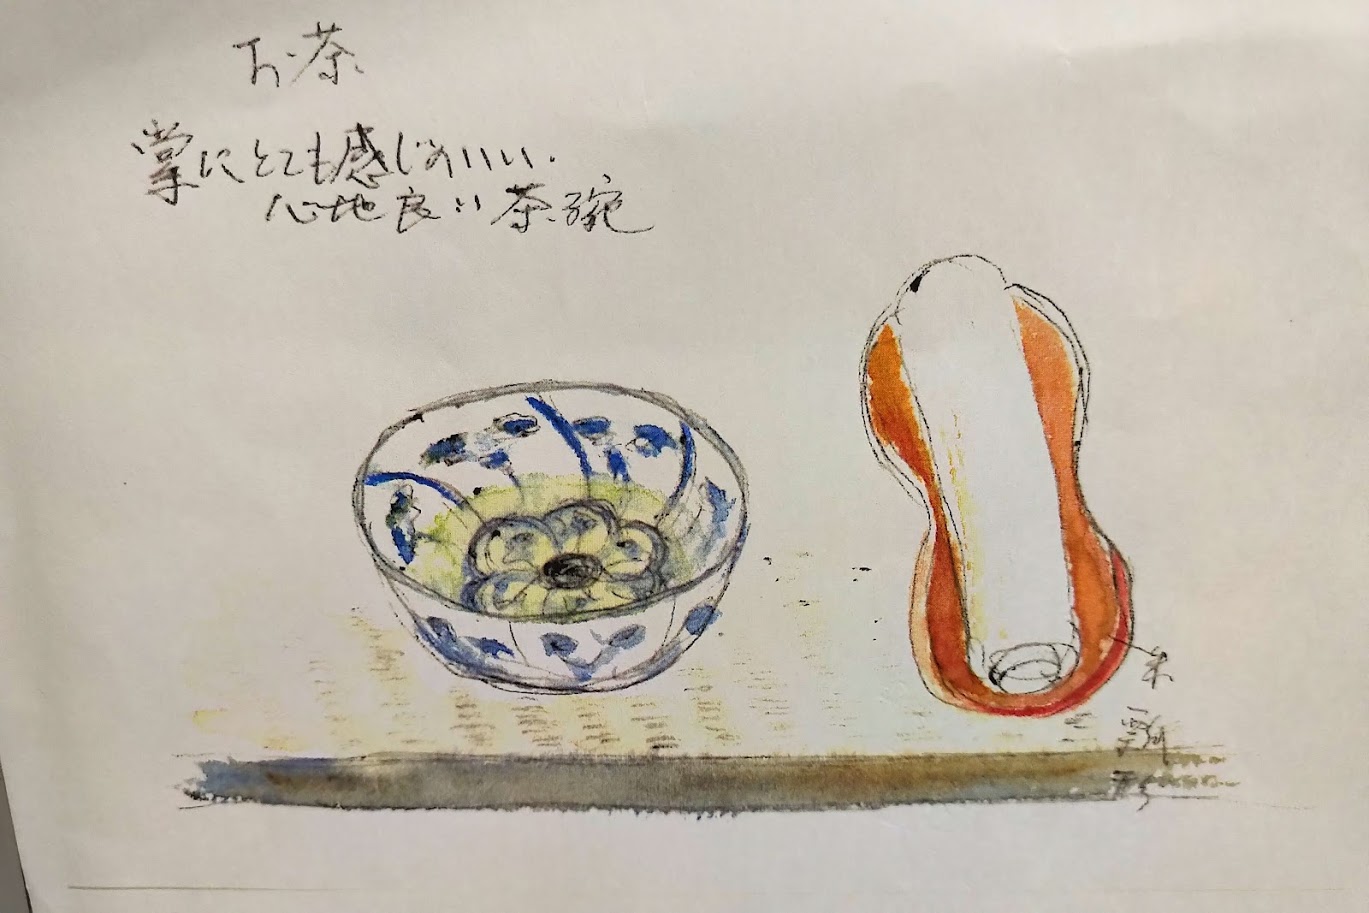 お茶
掌にとても感じのいい.
心地良い茶碗
朱
瓢形